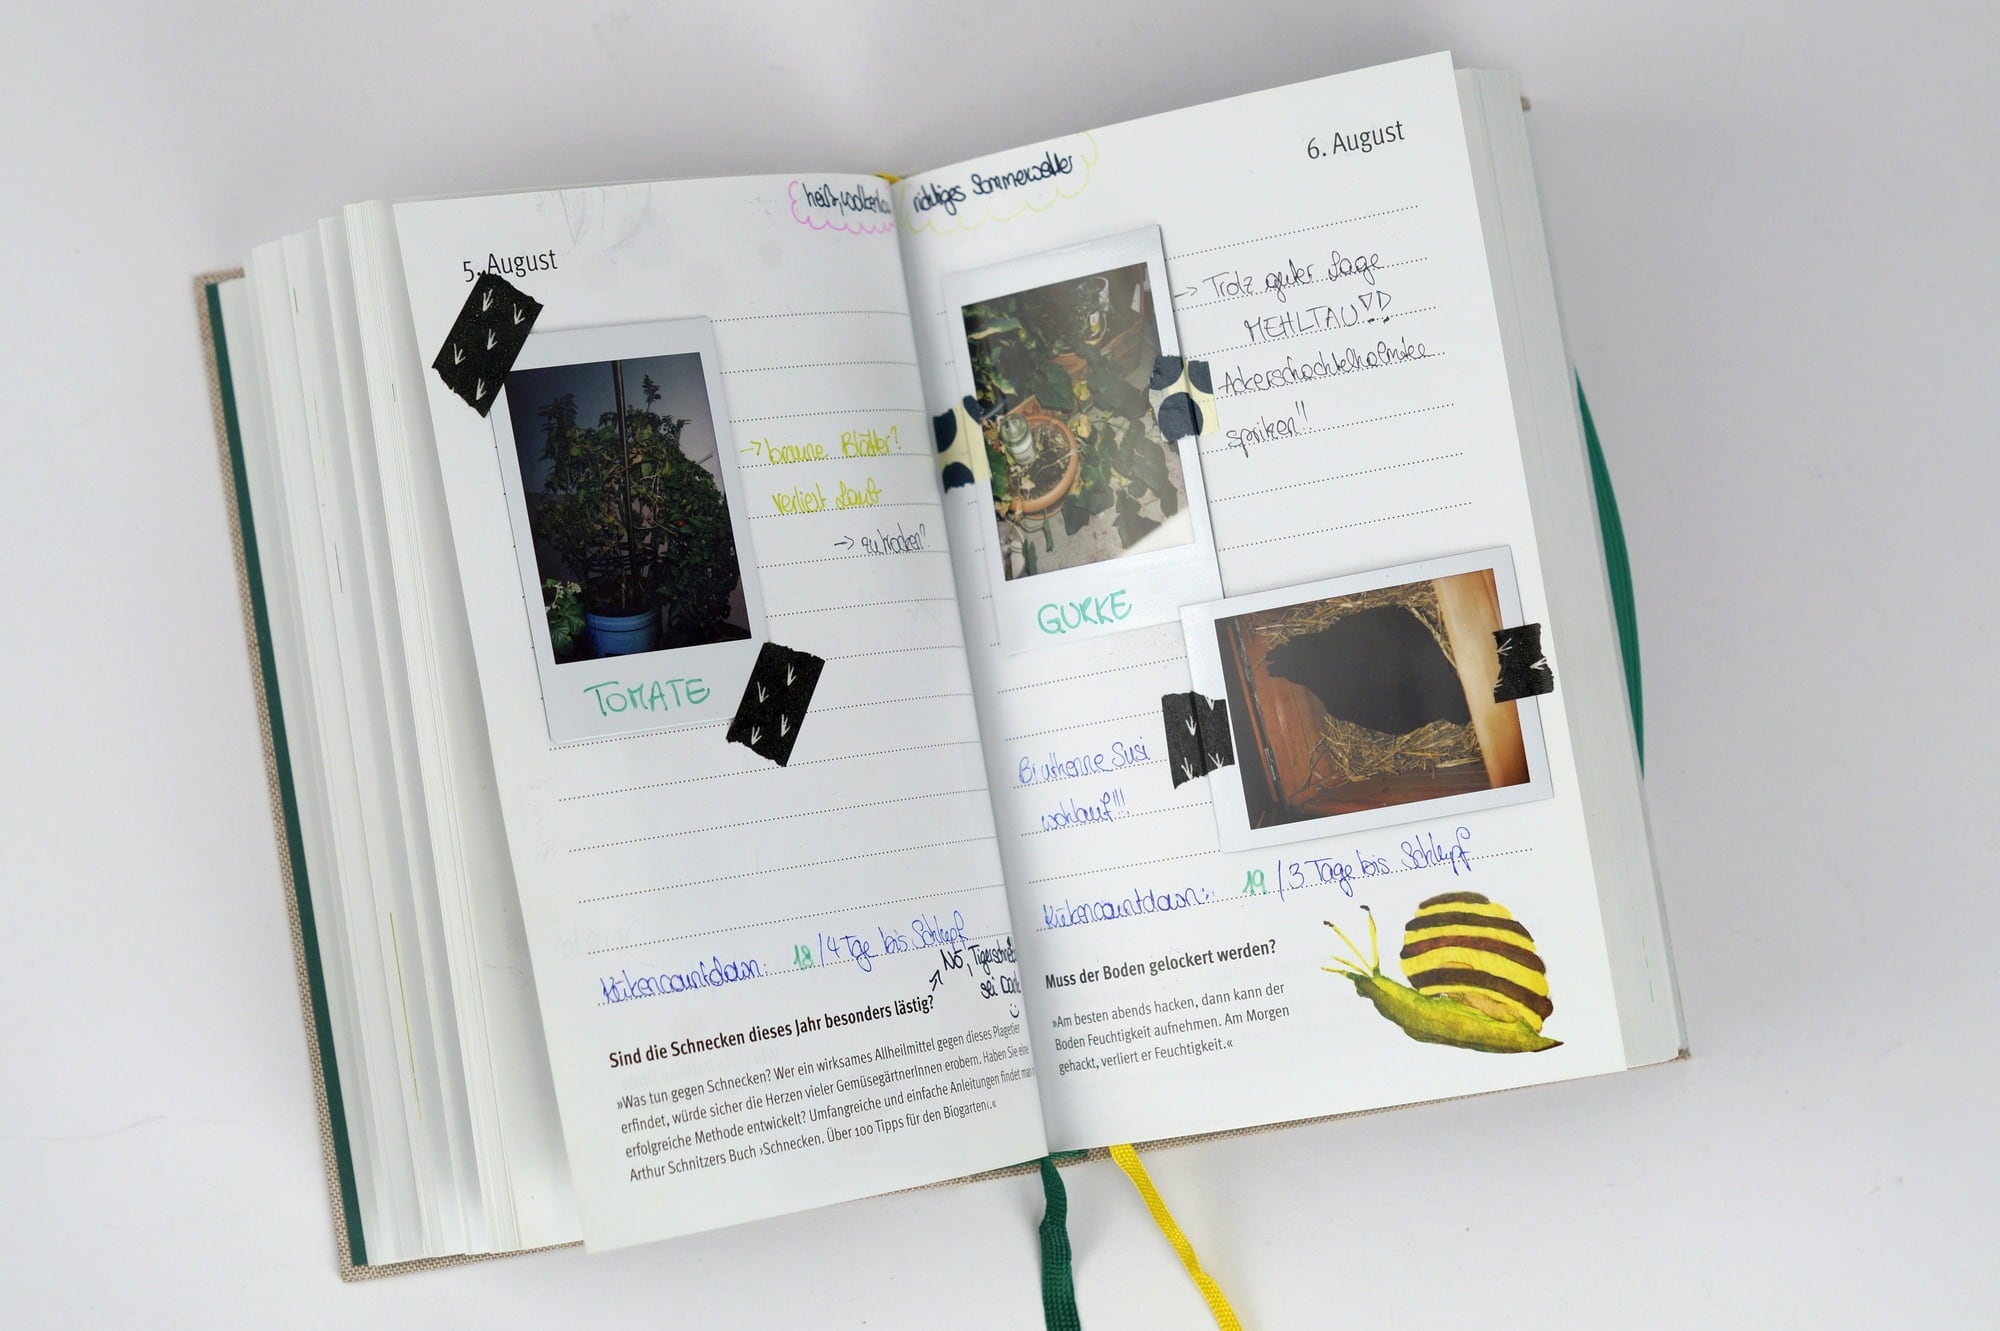 heiß, wolkenlos
5. August
→ braune Blätter?
verliert Laub
→ zu trocken?
TOMATE
Kükencountdown: 18 / 4 Tge bis Schlupf
Nö, Tigerschn
sei Dank
:)
Sind die Schnecken dieses Jahr besonders lästig?
»Was tun gegen Schnecken? Wer ein wirksames Allheilmittel gegen dieses Plagetier
erfindet, würde sicher die Herzen vieler GemüsegärtnerInnen erobern. Haben Sie eine
erfolgreiche Methode entwickelt? Umfangreiche und einfache Anleitungen findet man
Arthur Schnitzers Buch ›Schnecken. Über 100 Tipps für den Biogarten‹.«
richtiges Sommerwetter
6. August
→ Trotz guter Lage
MEHLTAU!!
spritzen!!
GURKE
Bruthenne Susi
wohlauf!!!
Kükencountdown: 19 / 3 Tage bis Schlupf
Muss der Boden gelockert werden?
»Am besten abends hacken, dann kann der
Boden Feuchtigkeit aufnehmen. Am Morgen
gehackt, verliert er Feuchtigkeit.«